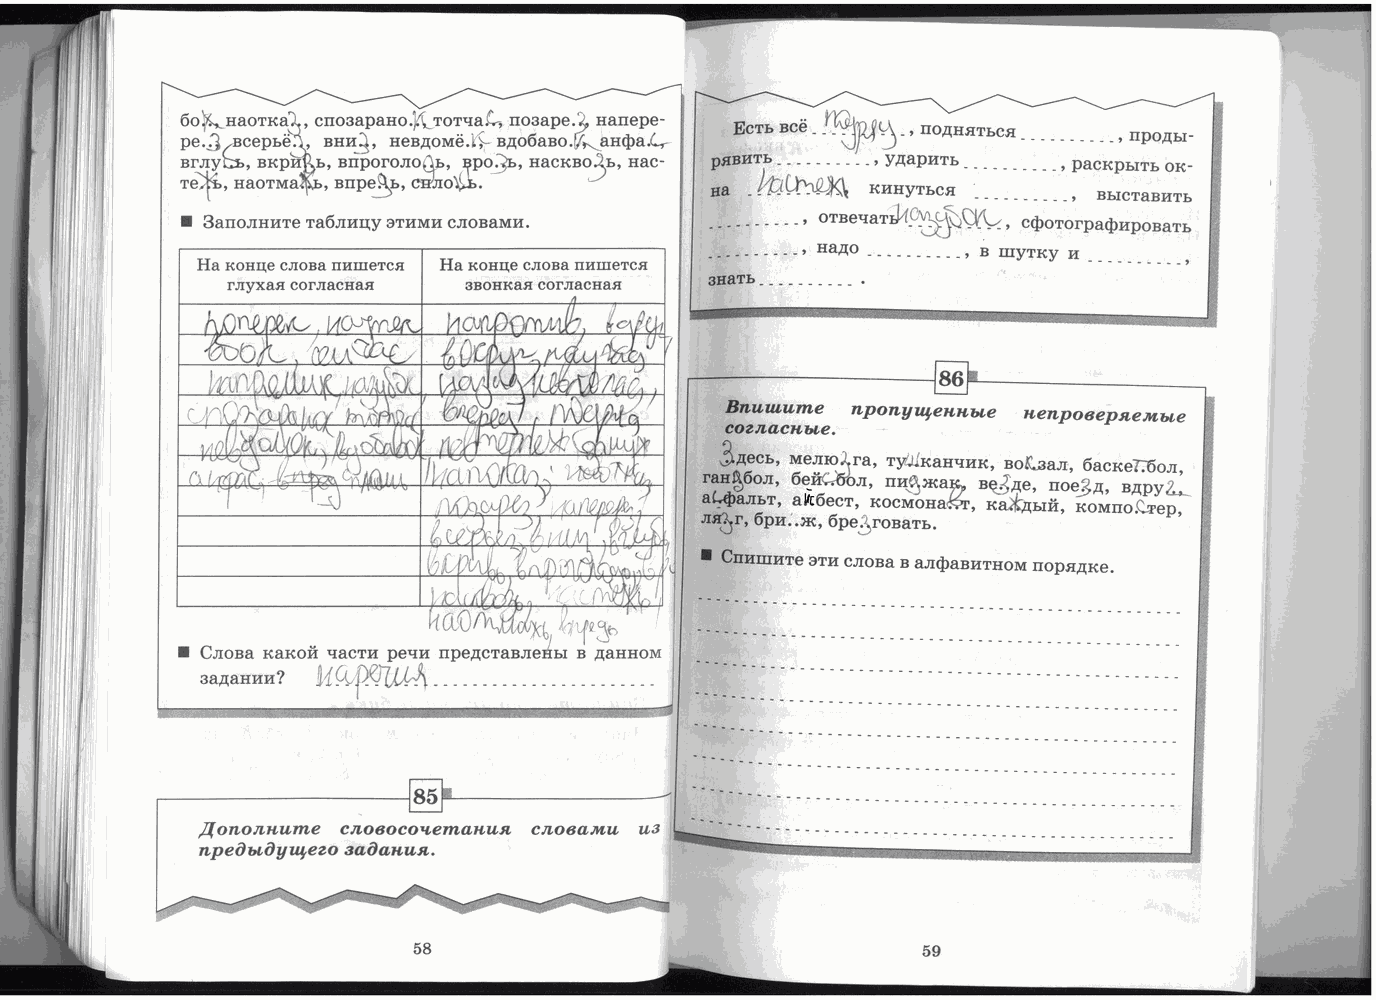 бо ж.., наотка з.., спозарано к.., тотча с.., позаре з.., напере-
ре з.., всерьё з.., вни з.., невдомё к.., вдобаво к.., анфа с..,
вглу бь, вкри вь, впроголо дь, вро зь, наскво зь, нас-
те жь, наотма шь, впре дь, спло шь.
■ Заполните таблицу этими словами.
На конце слова пишется глухая согласная
На конце слова пишется звонкая согласная
поперек, наутек
напротив, вдруг
вбок, сейчас
вокруг, наугад
напрямик, назубок,
назад, невпопад,
спозаранок, тотчас
вперед, подряд
невдомек, вдобавок
невтерпеж
анфас, сплошь
напоказ, наотказ,
позарез, наперерез,
всерьез, вниз, вглубь
вкривь, впроголодь,
насквозь, настежь,
наотмашь, впредь
■ Слова какой части речи представлены в данном
задании? наречия
85
Дополните словосочетания словами из
предыдущего задания.
58
Есть всё подряд, подняться .........., проды-
рявить .........., ударить .........., раскрыть ок-
на настежь, кинуться .........., выставить
.........., отвечать назубок, сфотографировать
.........., надо .........., в шутку и ..........,
знать .......... .
86
Впишите пропущенные непроверяемые
согласные.
Здесь, мелюзга, тушканчик, вокзал, баскетбол,
гандбол, бейсбол, пиджак, везде, поезд, вдруг,
асфальт, айбест, космонавт, каждый, компостер,
лязг, бри..ж, брезговать.
■ Спишите эти слова в алфавитном порядке.
59